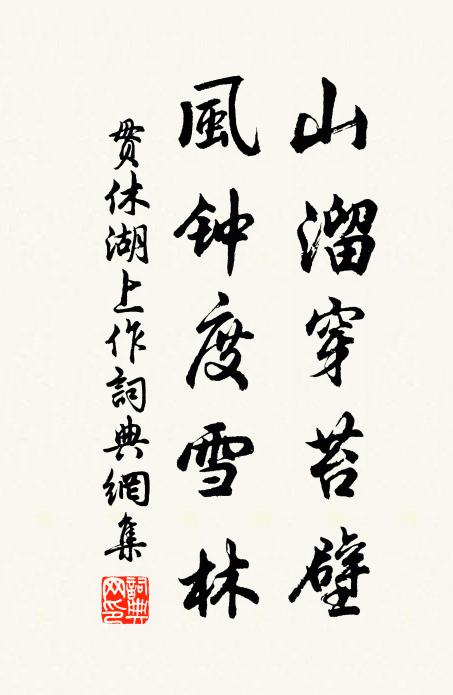 山溜穿苔壁
風钟度雪林
贯休湖上作詞典網集
詞典网印